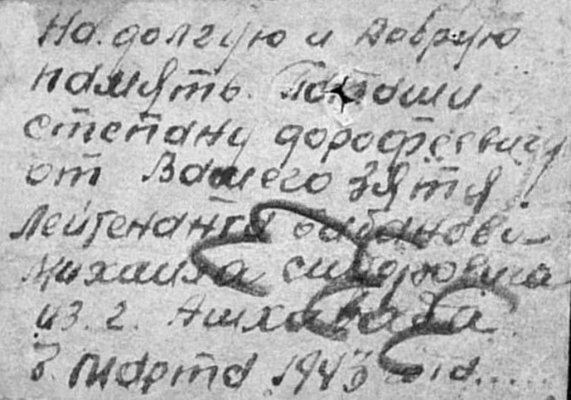 на долгую и добрую
память. Папаши
степану дорофеевичу
от Вашего зятя
Лейтенанта
Михаила сидоровича
из г. Ашхабада
3. марта 1943 года.....